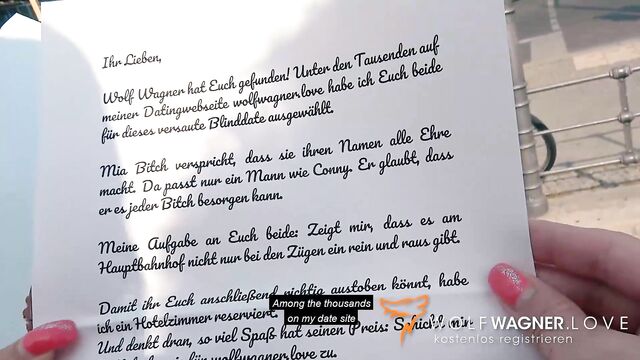 Ihr Lieben,
Wolf Wagner hat Euch gefunden! Unter den Tausenden auf
meiner Datingwebseite wolfwagner.love habe ich Euch beide
für dieses versaute Blinddate ausgewählt.
Mia Bitch verspricht, dass sie ihren Namen alle Ehre
macht. Da passt nur ein Mann wie Conny. Er glaubt, dass
er es jeder Bitch besorgen kann.
Meine Aufgabe an Euch beide: Zeigt mir, dass es am
Hauptbahnhof nicht nur bei den Zügen ein rein und raus gibt.
Damit ihr Euch anschließend richtig austoben könnt, habe
ich ein Hotelzimmer reserviert.
Und denkt dran, so viel Spaß hat seinen Preis: Schickt mir
für wolfwagner.love zu.
Among the thousands
on my date site
WOLFWAGNER.LOVE
kostenlos registrieren